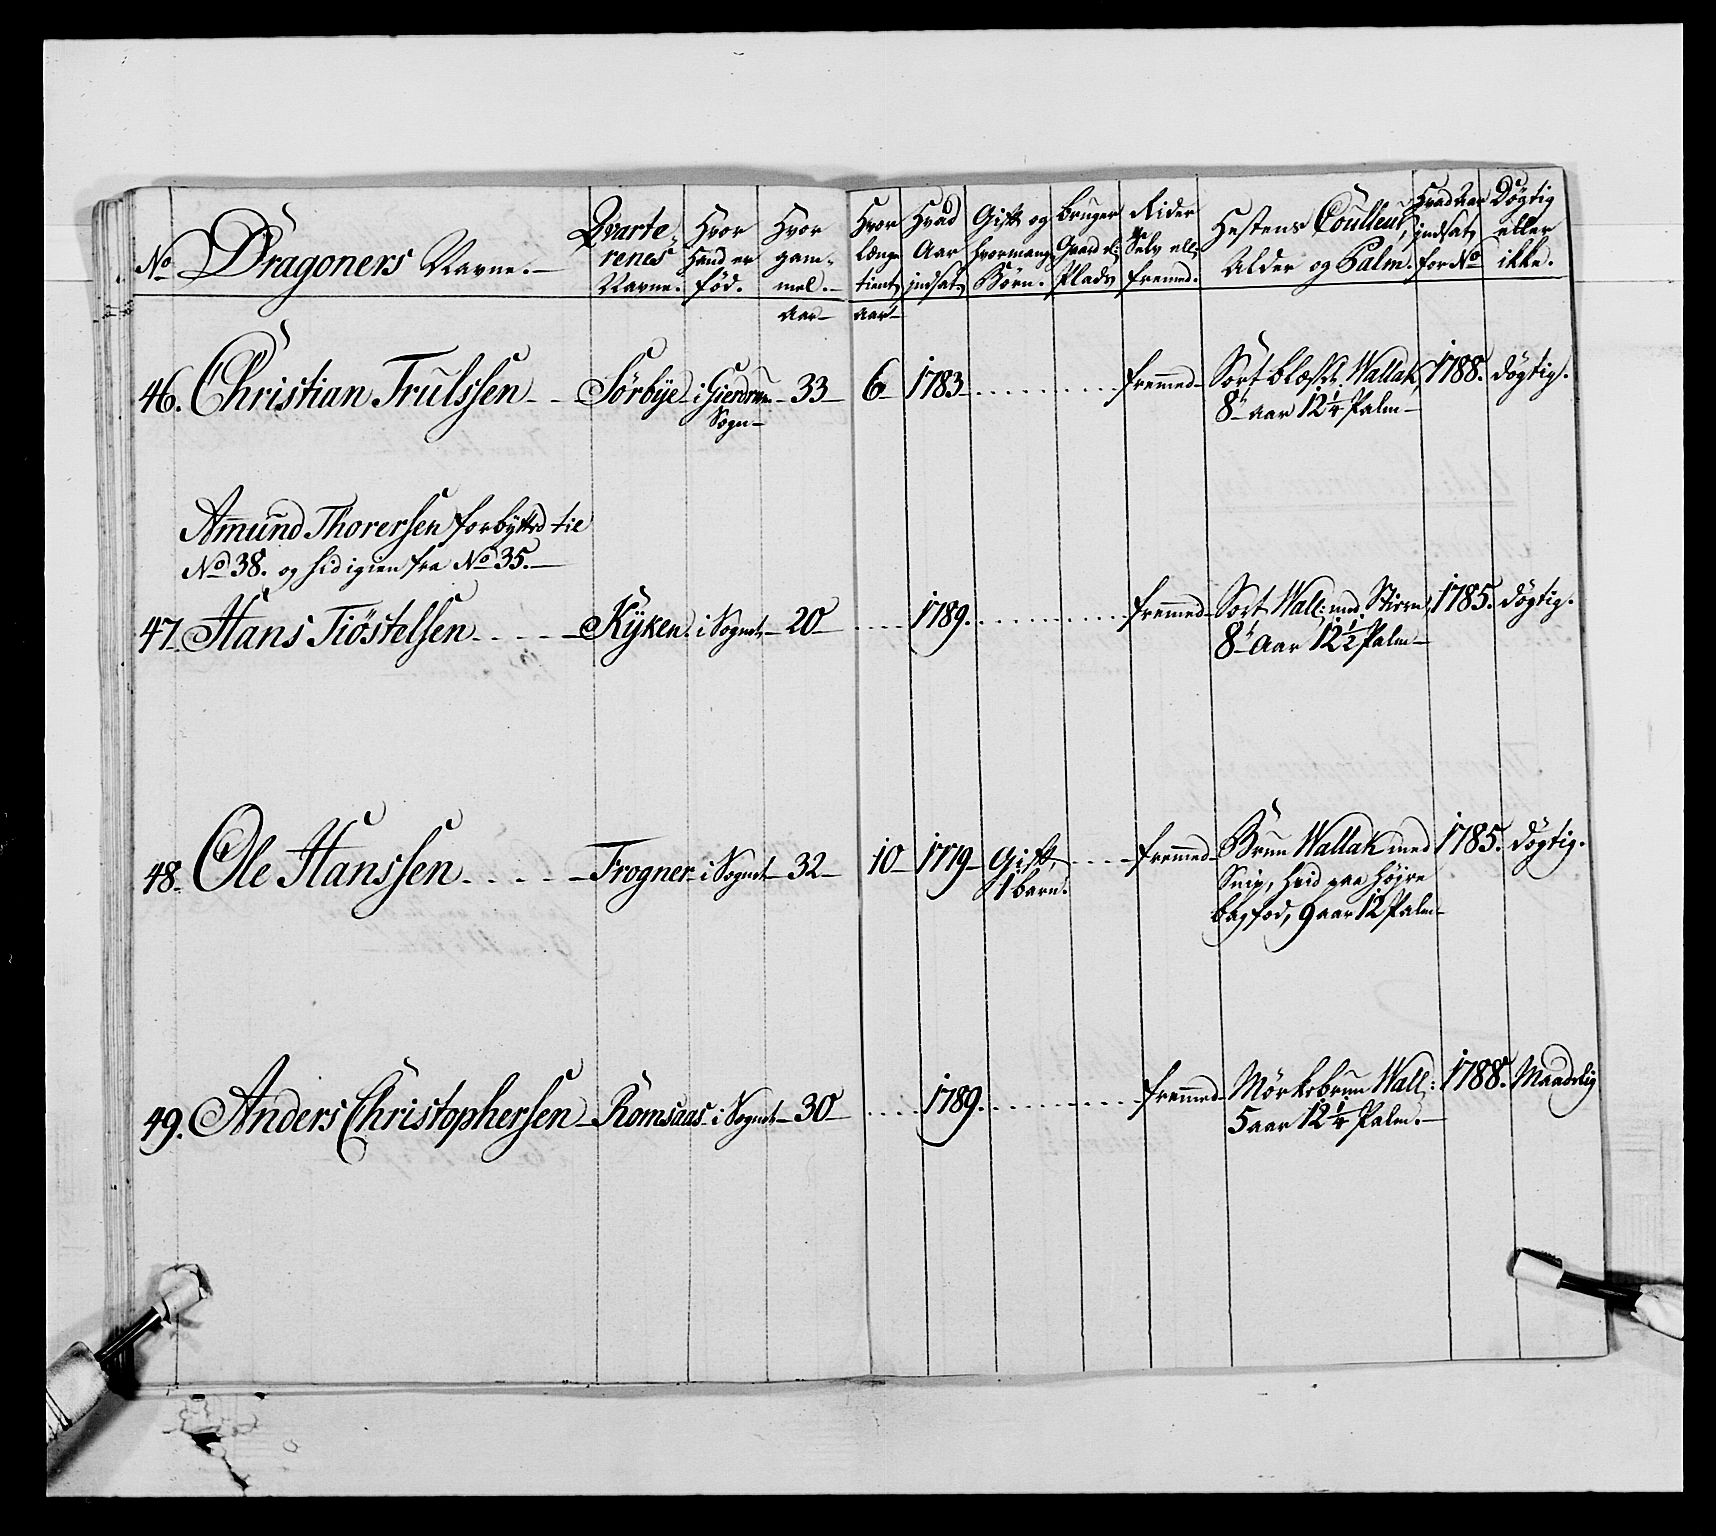 No Dragoners Navne. Qvarte renes Navne. Hvor Hand er fød. Hvor gam- mel. Hvor længe tient Hvad Aar indsat Gift og hvormange Børn. Bruger Gaard el: Plads Rider Selv ell: fremed. Hestens Couleur, Alder og Palm. Hvad Aar indsat for No Døgtig eller ikke.
Aar aar
46. Christian Trulssen Sørbye i Gierdrum Sogn 33 6 1783 fremmed Sort blæset Wallak, 1788. døgtig.
8 aar 12 1/4 Palm
Amund Thorersen forbytted til
No 38. og hid igien fra No 35.
47. Hans Tiøstelsen Kyken i Sognet 20 1789. fremmed Sort Wall: med Stierne, 1785. døgtig.
8 Aar 12 1/2 Palm
48. Ole Hanssen Frogner i Sognet 32 10 1779 Gift 1 barn. fremmed Brun Wallak med 1785. døgtig.
Snip, hvid paa høyre
bagfod, 9 aar 12 Palm
49. Anders Christophersen Romsaas i Sognet 30 1789. fremmed Mörkebrun Wall: 1788. Maadelig
5 aar 12 1/4 Palm.